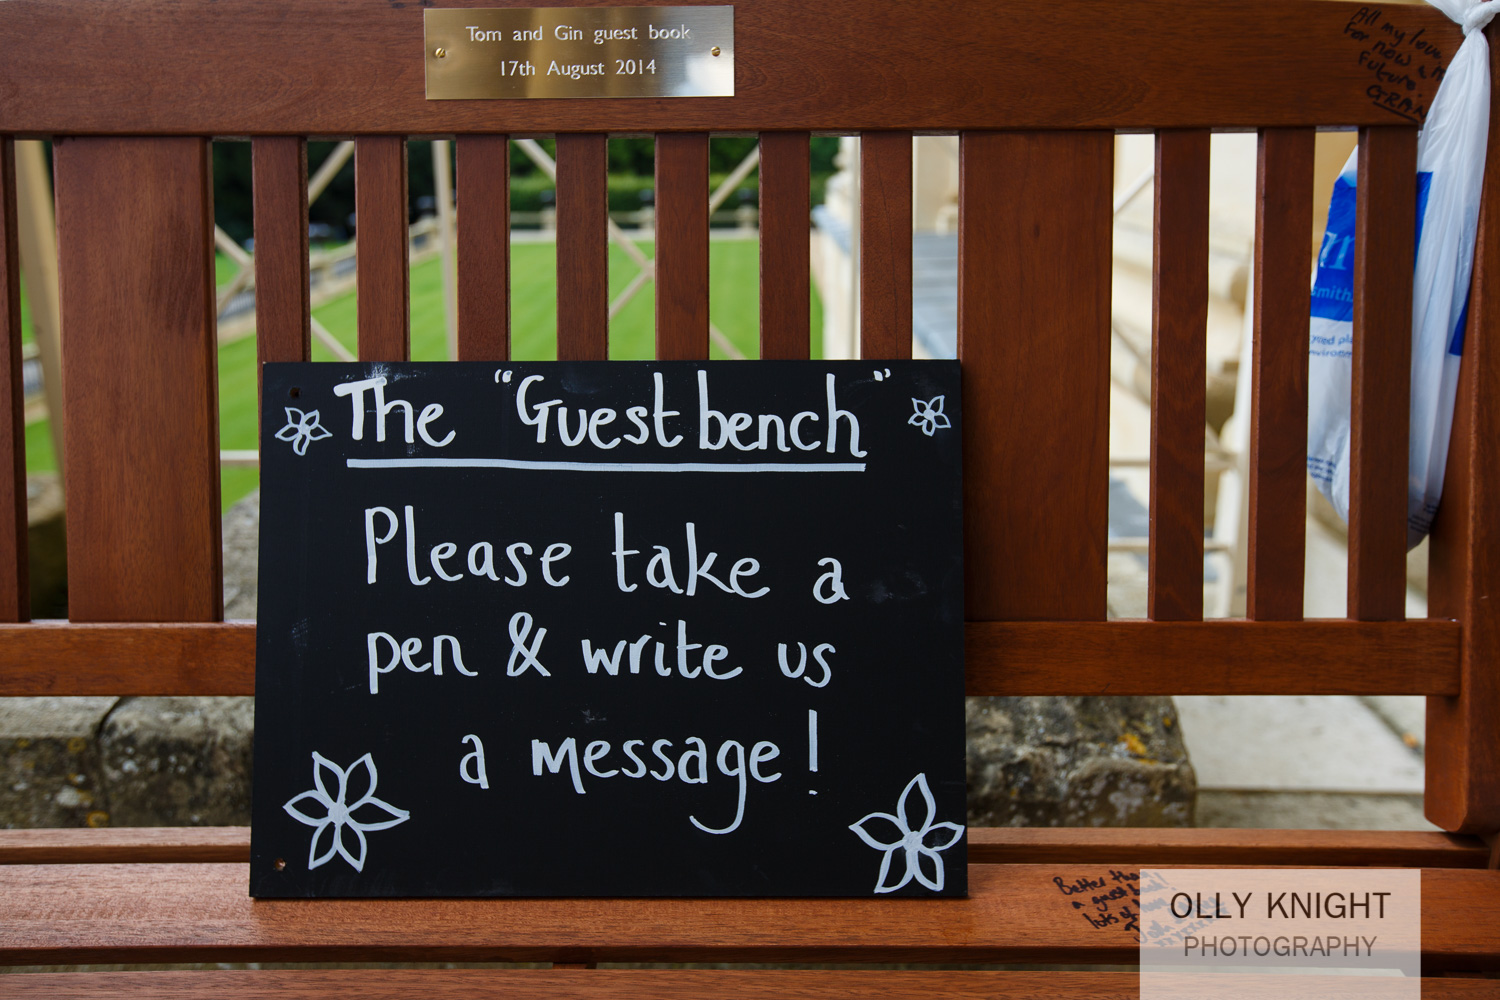 Tom and Gin guest book
17th August 2014
All my love
For now &
Future
The "Guest bench"
Please take a
pen & write us
a message!
mith
Better
a guest
lots of
OLLY KNIGHT
PHOTOGRAPHY